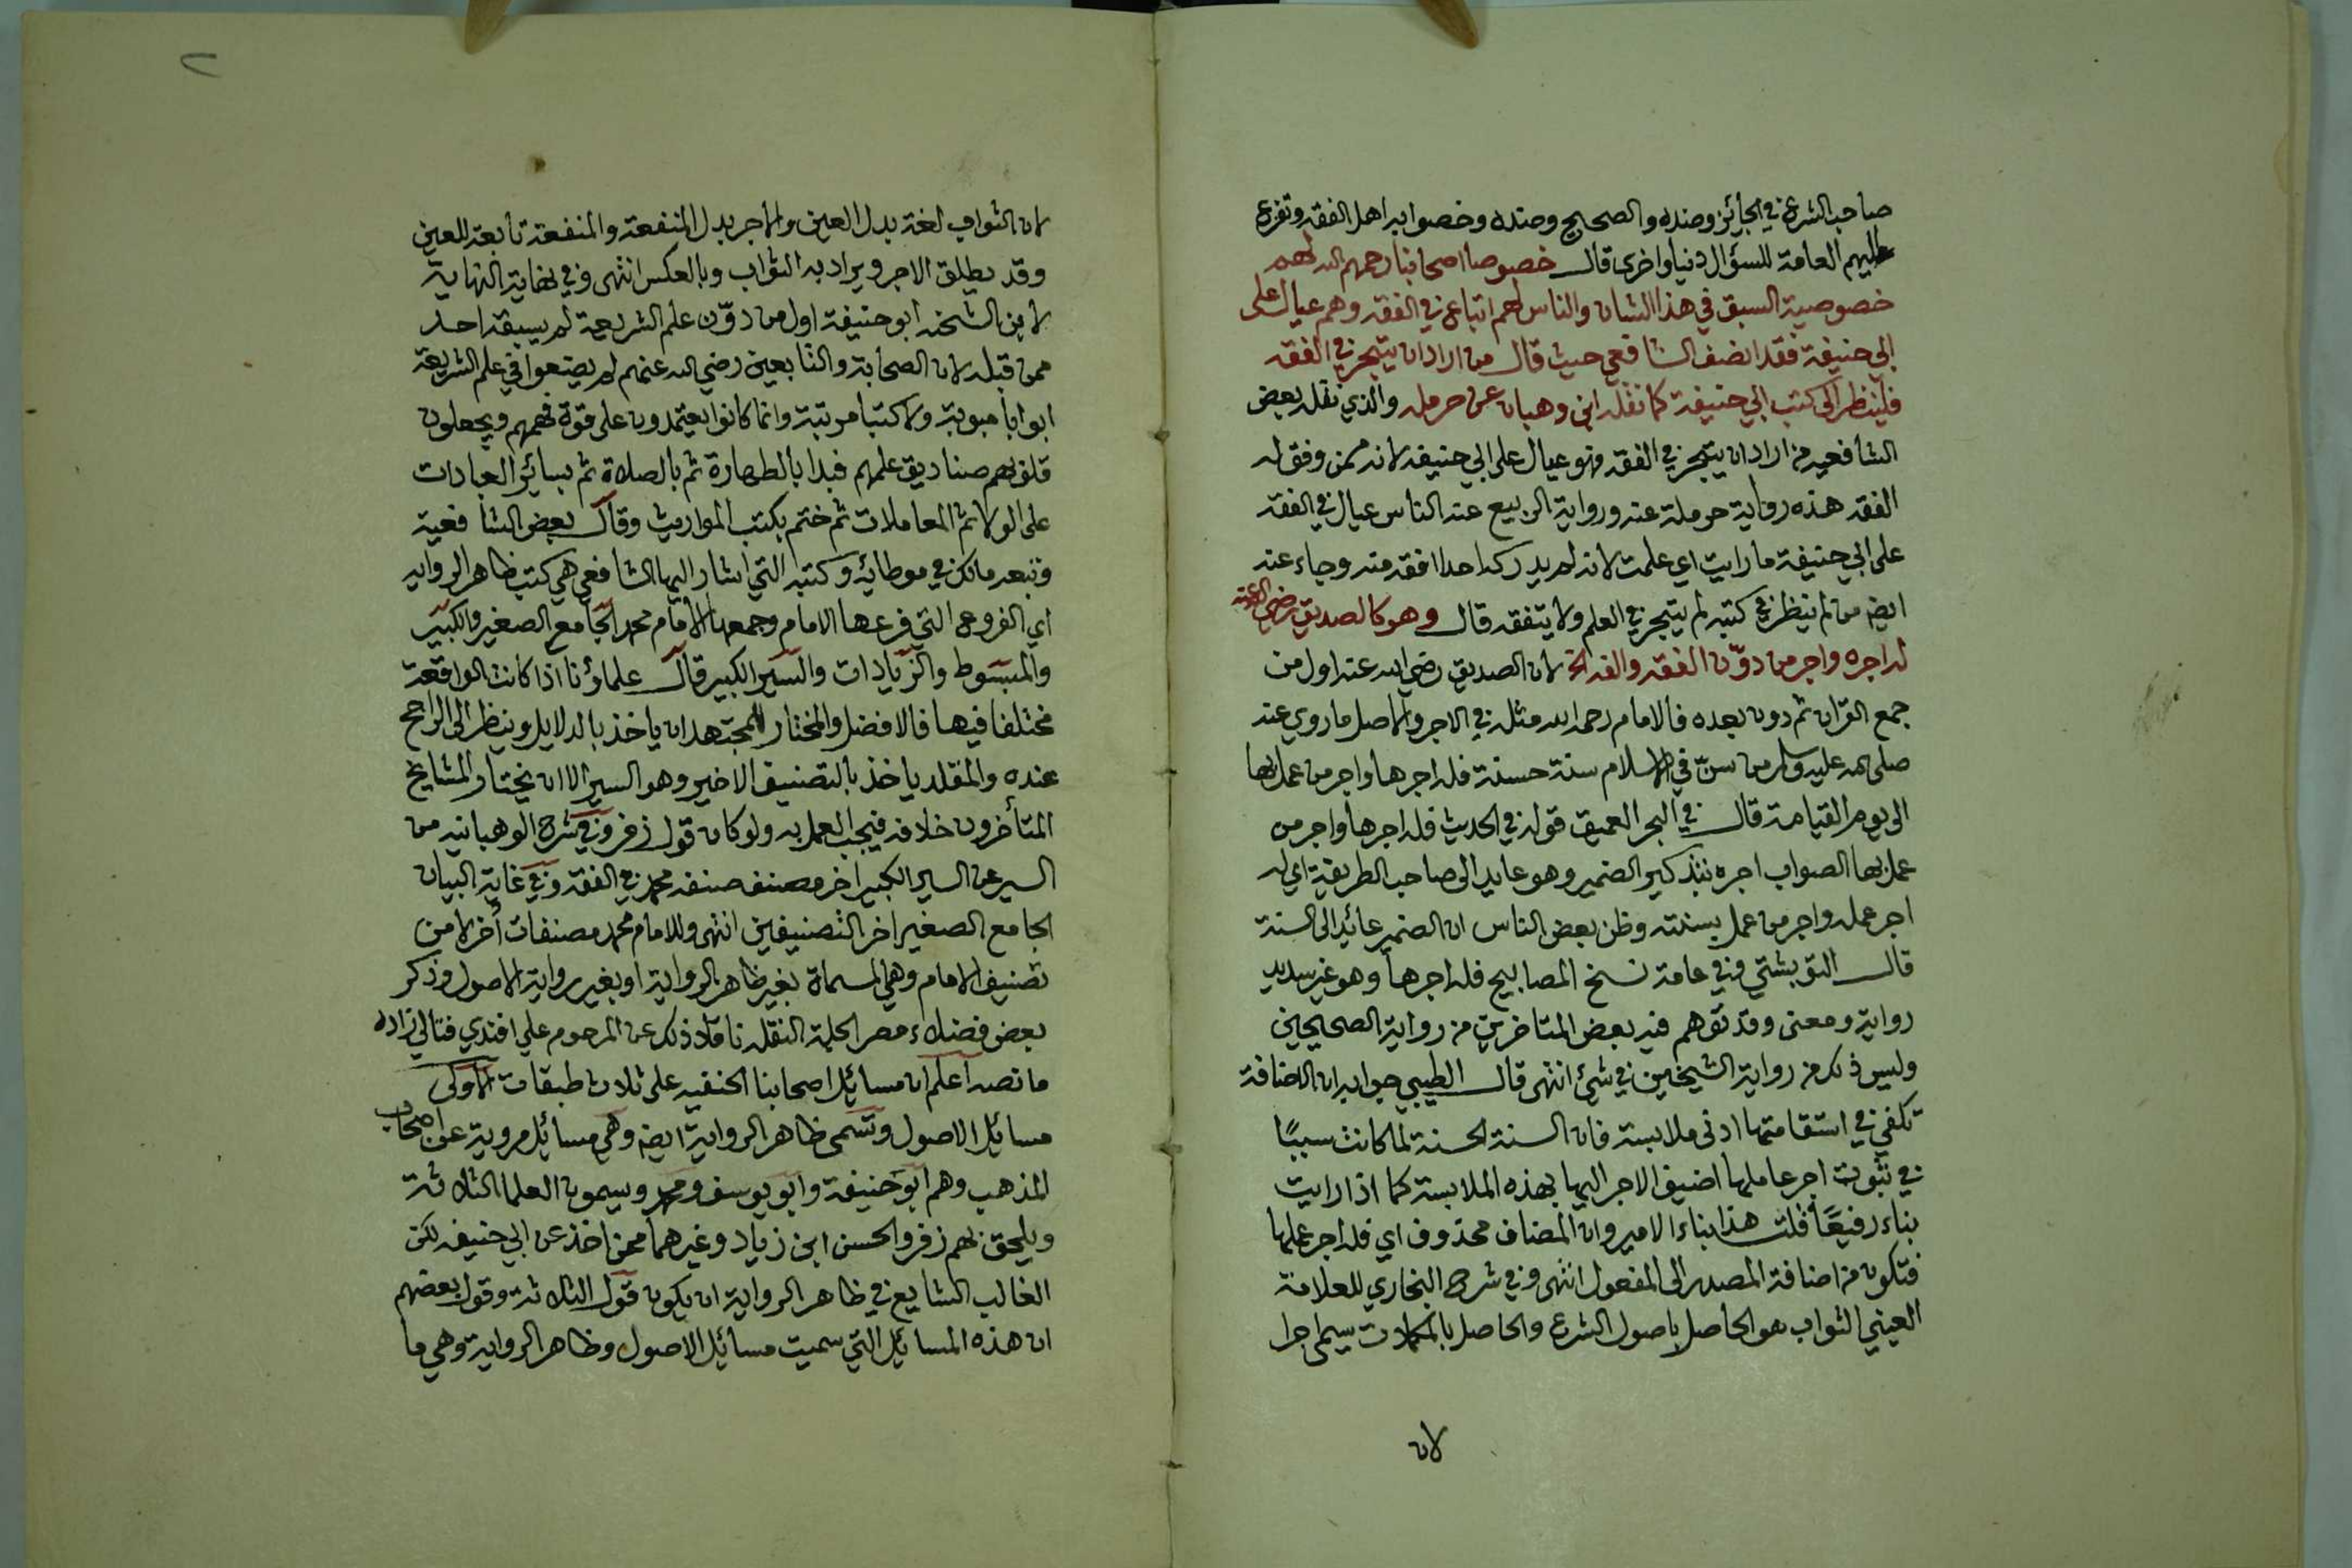 صاحب الشرع في الجائز وضده والصحيح وضده وخصوا به اهل الفقه وتفزع
اليهم العامة للسؤال دنيا واخرى قال خصوصا اصحابنا رحمهم الله لهم
خصوصية السبق في هذا الشان والناس لهم اتباع في الفقه وهم عيال على
ابي حنيفة فقد انصف الشافعي حيث قال من اراد ان يتبحر في الفقه
فلينظر الى كتب ابي حنيفة كما نقله ابن وهبان عن حرمله والذي نقله بعض
الشافعيه من اراد ان يتبحر في الفقه فهو عيال على ابي حنيفه لانه ممن وفق له
الفقه هذه رواية حرملة عنه ورواية الربيع عنه الناس عيال في الفقه
على ابي حنيفة ما رايت اي علمت لانه لم يدرك احدا افقه منه وجاء عنه
ايضه من لم ينظر في كتبه لم يتبحر في العلم ولا يتفقه قال وهو كالصديق رضي الله عنه
له اجره واجر من دوّن الفقه والفه الخ لان الصديق رضي الله عنه اول من
جمع القران ثم دون بعده فالامام رحمه الله مثله في الاجر والاصل ما روي عنه
صلى الله عليه وسلم من سنّ في الاسلام سنة حسنة فله اجرها واجر من عمل بها
الى يوم القيامة قال في البحر العميق قوله في الحديث فله اجرها واجر من
عمل بها الصواب اجره بتذكير الضمير وهو عايد الى صاحب الطريقة اي له
اجر عمله واجر من عمل بسنته وظن بعض الناس ان الضمير عائد الى السنة
قال التوبشتي وفي عامة نسخ المصابيح فله اجرها وهو غير سديد
رواية ومعنى وقد توهم فيه بعض المتاخرين من رواية الصحيحين
وليس ذلك من رواية الشيخين في شئ انتهى قال الطيبي جوابه ان الاضافة
تكفي في استقامتها ادنى ملابسة فان السنة الحسنة لما كانت سببًا
في ثبوت اجر عاملها اضيف الاجر اليها بهذه الملابسة كما اذا رايت
بناء رفيعًا قلت هذا بناء الامير وان المضاف محذوف اي فله اجر عملها
فتكون من اضافة المصدر الى المفعول انتهى وفي شرح البخاري للعلامة
العيني الثواب هو الحاصل باصول الشرع والحاصل بالمكملات سمي اجرا
لان
٢
لان الثواب لغة بدل العين والاجر بدل المنفعة والمنفعة تابعة للعين
وقد يطلق الاجر ويراد به الثواب وبالعكس انتهى وفي نهاية النهاية
لابن الشحنه ابو حنيفة اول من دوّن علم الشريعة لم يسبقه احد
ممن قبله لان الصحابة والتابعين رضي الله عنهم لم يضعوا في علم الشريعة
ابوابا مبوبة ولا كتبا مرتبة وانما كانوا يعتمدون على قوة فهمهم ويجعلون
قلوبهم صناديق علمهم فبدا بالطهارة ثم بالصلاة ثم بسائر العبادات
على الولا ثم المعاملات ثم ختم بكتب المواريث وقال بعض الشافعية
وتبعه مالك في موطائه وكتبه التي اشار اليها الشافعي هي كتب ظاهر الروايه
اي الفروع التي فرعها الامام وجمعها الامام محمد الجامع الصغير والكبير
والمبسوط والزيادات والسير الكبير قال علماؤنا اذا كانت الواقعة
مختلفا فيها فالافضل والمختار للمجتهد ان ياخذ بالدلايل وينظر الى الراجح
عنده والمقلد ياخذ بالتصنيف الاخير وهو السير الا ان يختار المشايخ
المتأخرون خلافه فيجب العمل به ولو كان قول زفر وفي شرح الوهبانيه من
السير عن السير الكبير اخر مصنف صنفه محمد في الفقه وفي غاية البيان
الجامع الصغير اخر التصنيفين انتهى وللامام محمد مصنفات أخر لا من
تصنيف الامام وهي المسماة بغير ظاهر الرواية او بغير رواية الاصول وذكر
بعض فضلاء مصر الجلة النقله ناقلا ذلك عن المرحوم علي افندي قنالي زاده
ما نصه اعلم ان مسائل اصحابنا الحنفيه على ثلاث طبقات الاولى
مسايل الاصول وتسمى ظاهر الرواية ايضه وهي مسائل مروية عن اصحاب
المذهب وهم ابو حنيفة وابو يوسف ومحمد ويسمون العلما الثلاثة
ويلحق بهم زفر والحسن ابن زياد وغيرهما ممن اخذ عن ابي حنيفه لكن
الغالب الشايع في ظاهر الرواية ان يكون قول الثلاثة وقول بعضهم
ان هذه المسائل التي سميت مسائل الاصول وظاهر الرواية وهي ما